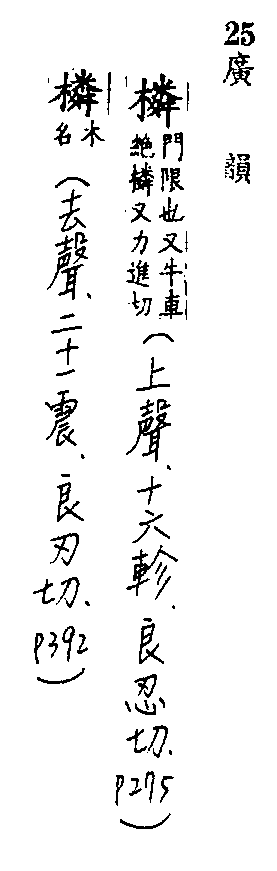 25廣韻
橉門限也又牛車絶橉又力進切(上聲、十六軫、良忍切、P275)
橉木名(去聲、二十一震、良刃切、P392)